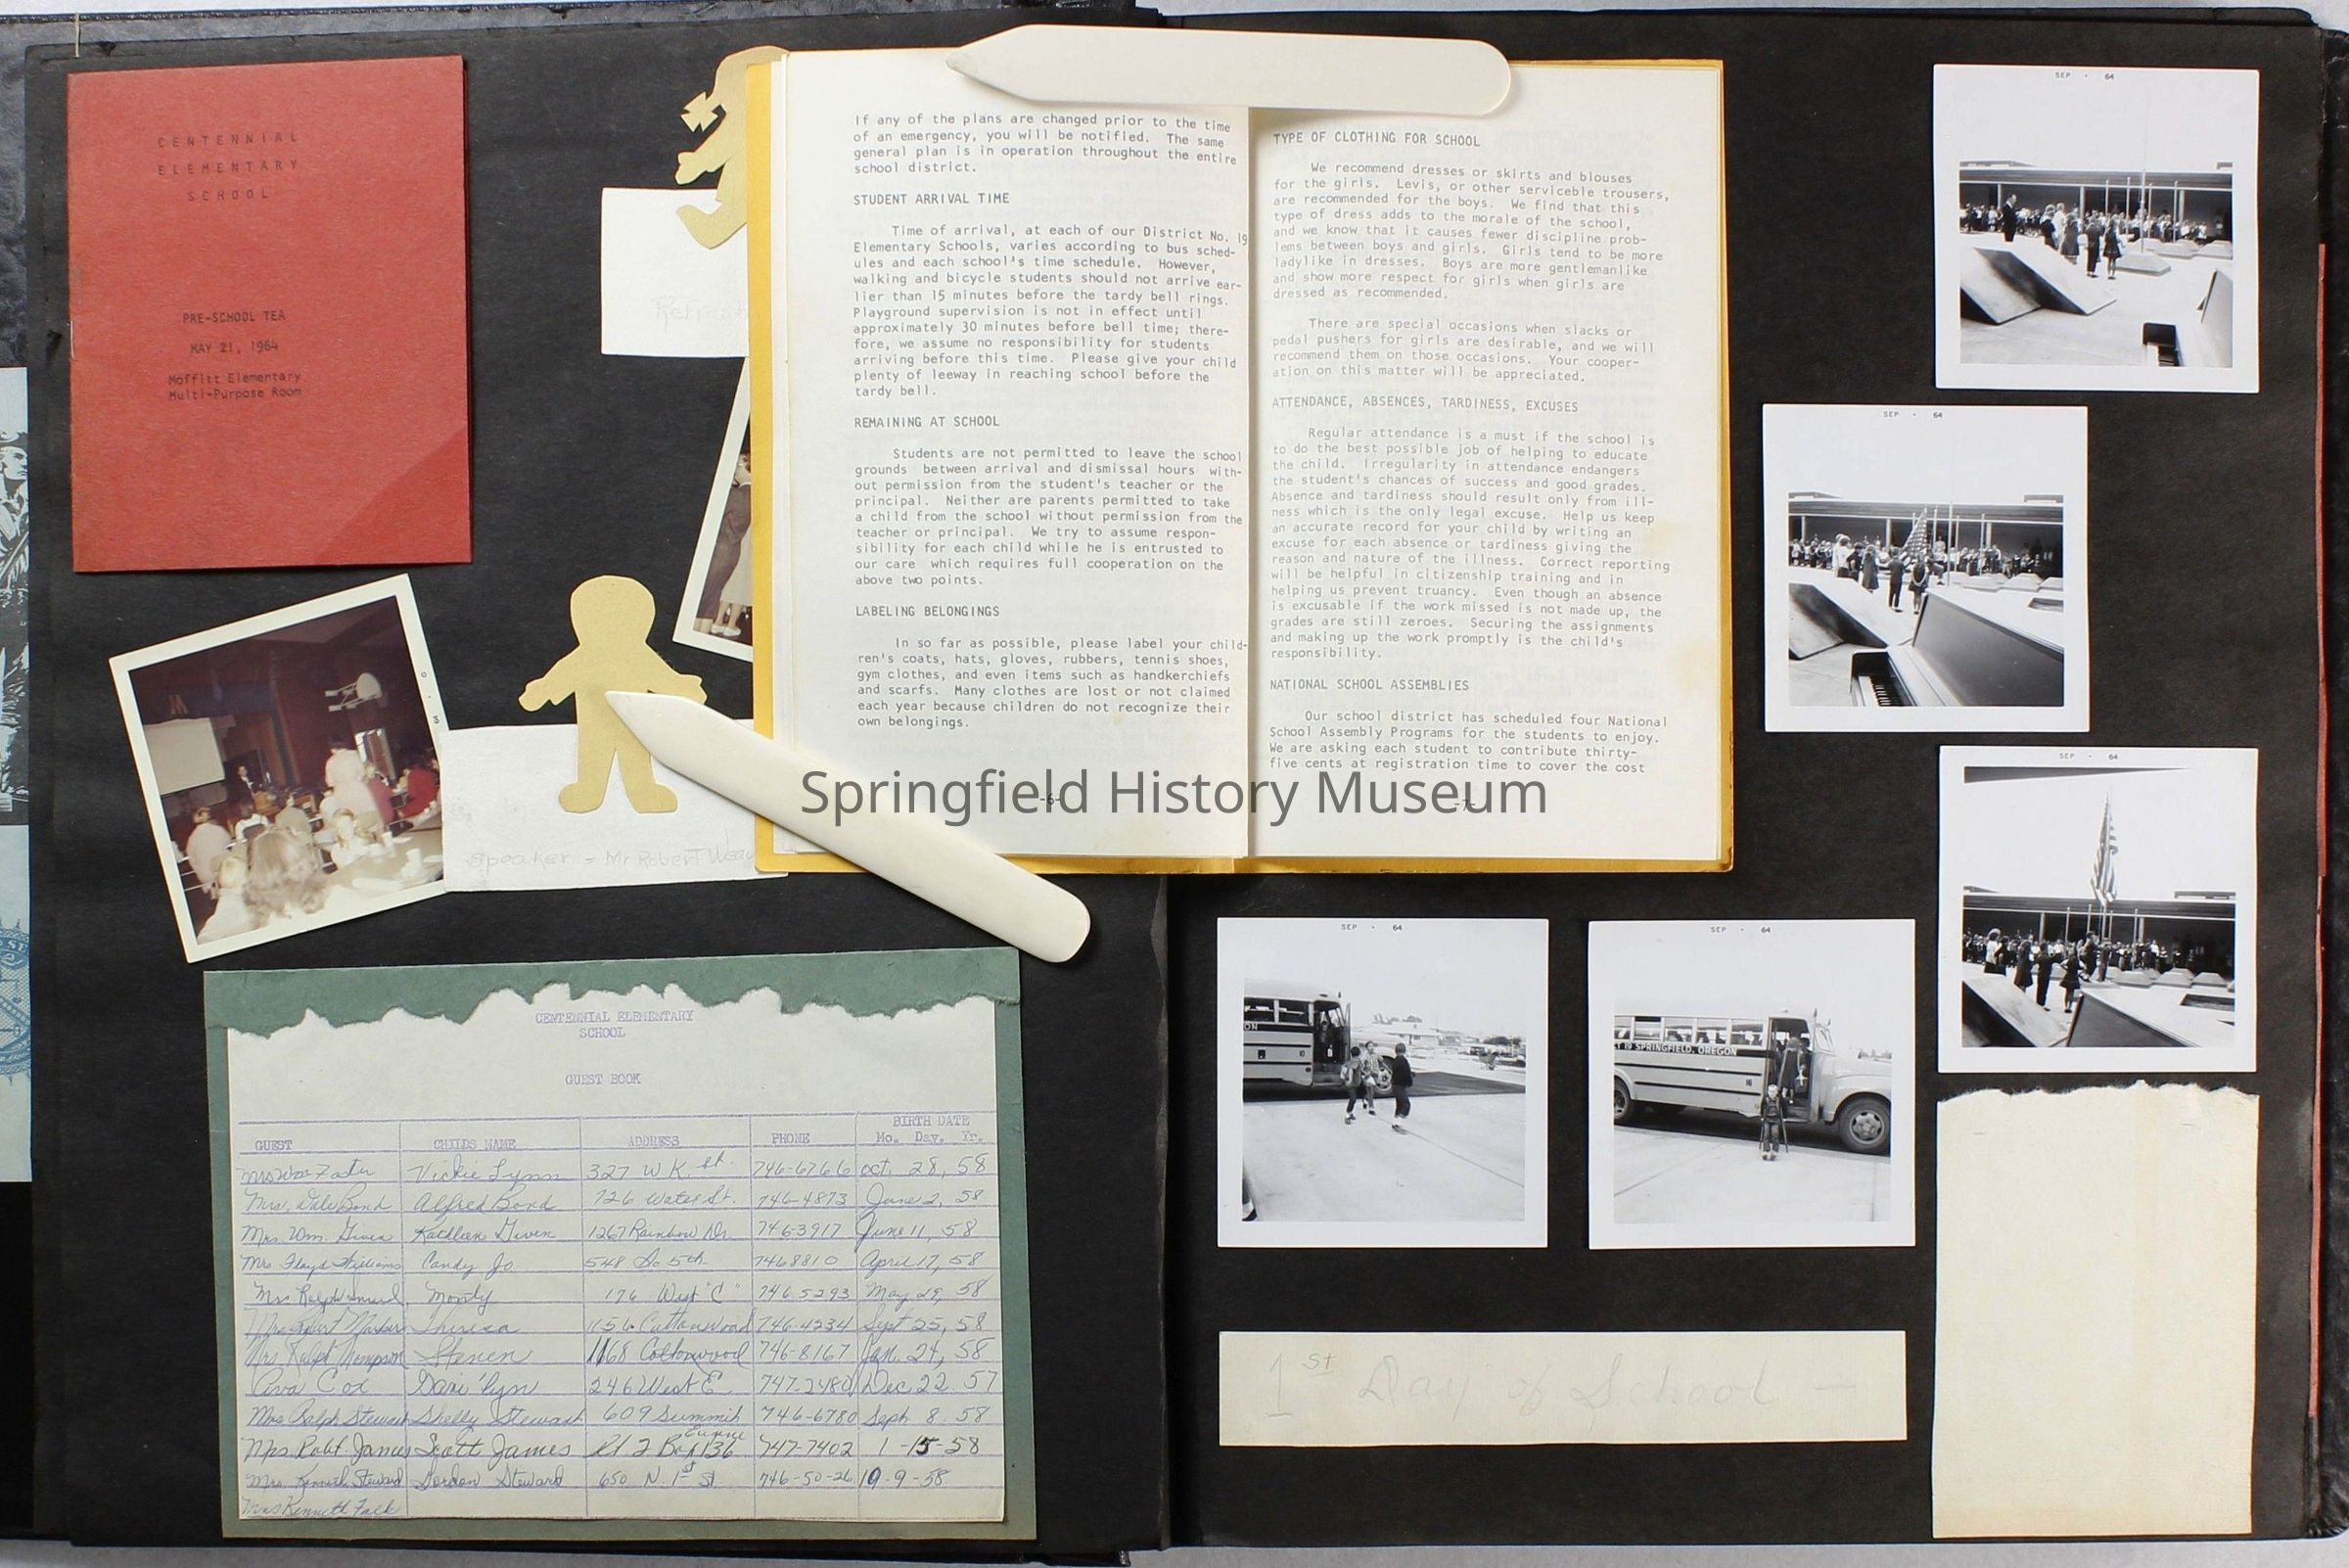 CENTENNIAL
ELEMENTARY
SCHOOL
PRE-SCHOOL TEA
MAY 21, 1964
Moffitt Elementary
Multi-Purpose Room
Refresh
M
Speaker = Mr Robert Weav
If any of the plans are changed prior to the time
of an emergency, you will be notified. The same
general plan is in operation throughout the entire
school district.
STUDENT ARRIVAL TIME
Time of arrival, at each of our District No. 19
Elementary Schools, varies according to bus sched-
ules and each school's time schedule. However,
walking and bicycle students should not arrive ear-
lier than 15 minutes before the tardy bell rings.
Playground supervision is not in effect until
approximately 30 minutes before bell time; there-
fore, we assume no responsibility for students
arriving before this time. Please give your child
plenty of leeway in reaching school before the
tardy bell.
REMAINING AT SCHOOL
Students are not permitted to leave the school
grounds between arrival and dismissal hours with-
out permission from the student's teacher or the
principal. Neither are parents permitted to take
a child from the school without permission from the
teacher or principal. We try to assume respon-
sibility for each child while he is entrusted to
our care which requires full cooperation on the
above two points.
LABELING BELONGINGS
In so far as possible, please label your child-
ren's coats, hats, gloves, rubbers, tennis shoes,
gym clothes, and even items such as handkerchiefs
and scarfs. Many clothes are lost or not claimed
each year because children do not recognize their
own belongings.
-6-
TYPE OF CLOTHING FOR SCHOOL
We recommend dresses or skirts and blouses
for the girls. Levis, or other serviceble trousers,
are recommended for the boys. We find that this
type of dress adds to the morale of the school,
and we know that it causes fewer discipline prob-
lems between boys and girls. Girls tend to be more
ladylike in dresses. Boys are more gentlemanlike
and show more respect for girls when girls are
dressed as recommended.
There are special occasions when slacks or
pedal pushers for girls are desirable, and we will
recommend them on those occasions. Your cooper-
ation on this matter will be appreciated.
ATTENDANCE, ABSENCES, TARDINESS, EXCUSES
Regular attendance is a must if the school is
to do the best possible job of helping to educate
the child. Irregularity in attendance endangers
the student's chances of success and good grades.
Absence and tardiness should result only from ill-
ness which is the only legal excuse. Help us keep
an accurate record for your child by writing an
excuse for each absence or tardiness giving the
reason and nature of the illness. Correct reporting
will be helpful in citizenship training and in
helping us prevent truancy. Even though an absence
is excusable if the work missed is not made up, the
grades are still zeroes. Securing the assignments
and making up the work promptly is the child's
responsibility.
NATIONAL SCHOOL ASSEMBLIES
Our school district has scheduled four National
School Assembly Programs for the students to enjoy.
We are asking each student to contribute thirty-
five cents at registration time to cover the cost
-7-
Springfield History Museum
SEP • 64
SEP • 64
SEP • 64
SEP • 64
ON
10
SEP • 64
CT 19 SPRINGFIELD, OREGON
16
1st Day of School —
CENTENNIAL ELEMENTARY
SCHOOL
GUEST BOOK
GUEST CHILDS NAME ADDRESS PHONE BIRTH DATE
Mo. Day. Yr.
Vickie Lynn 327 W K. St. 746-6766 Oct. 28, 58
Mrs. Dale Bond Alfred Bond 726 Water St. 746-4873 June 2, 58
Mrs. Wm. Given Kathleen Given 1267 Rainbow Dr. 746-3917 June 11, 58
Mrs Floyd Williams Candy Jo 548 So 5th. 746 8810 April 17, 58
Mrs Ralph Monty 176 West "C" 746 5293 May 29, 58
Theresa 1156 Cottonwood 746-4234 Sept 25, 58
Mrs Ralph Thompson Steven 1168 Cottonwood 746-8167 Jan. 24, 58
Ava Cox Dari'lyn 246 West E 747-2480 Dec 22 57
Mrs Ralph Stewart Shelly Stewart 609 Summit 746-6780 Sept. 8. 58
Mrs. Robt. James Scott James Rt 2 Box 136 Eugene 747-7402 1-15-58
Mrs. Kenneth Steward Gordon Steward 650 N. 1st St. 746-50-26 10-9-58
Mrs Kenneth Falk